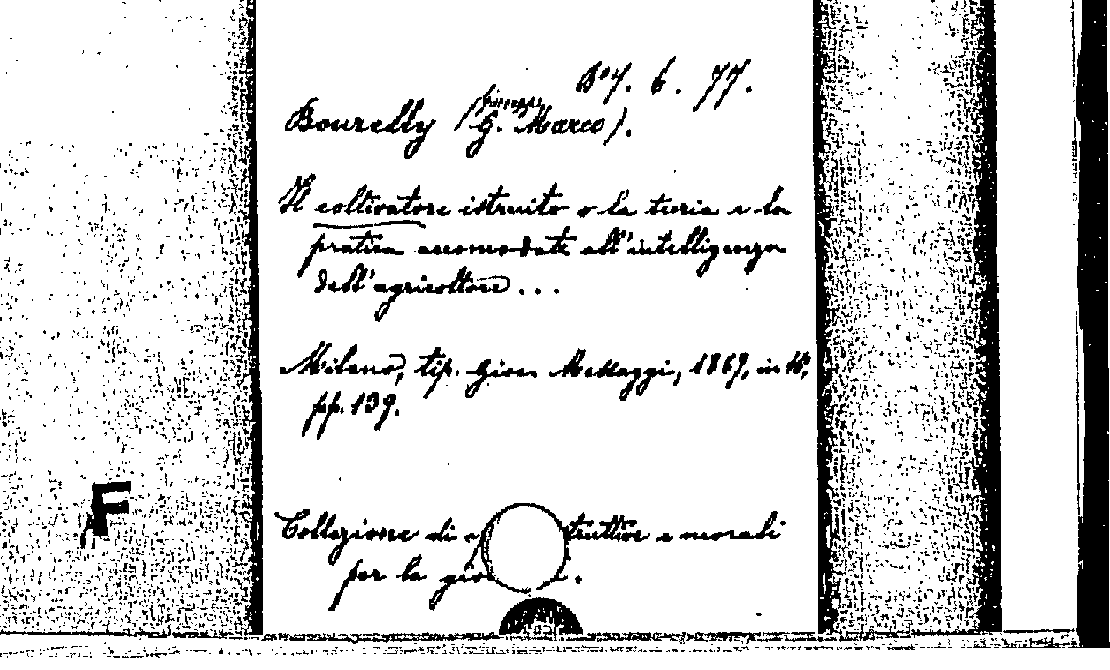 B°7. 6. 77.
Giuseppe
Bourelly (G. Marco).
Il coltivatore istruito o la teoria e la
pratica accomodate all'intelligenza
dell'agricoltore ...
Milano, tip. Giov. Messaggi, 1867, in 16°,
pp. 139.
Collezione di truttive e morali
per la gio
F